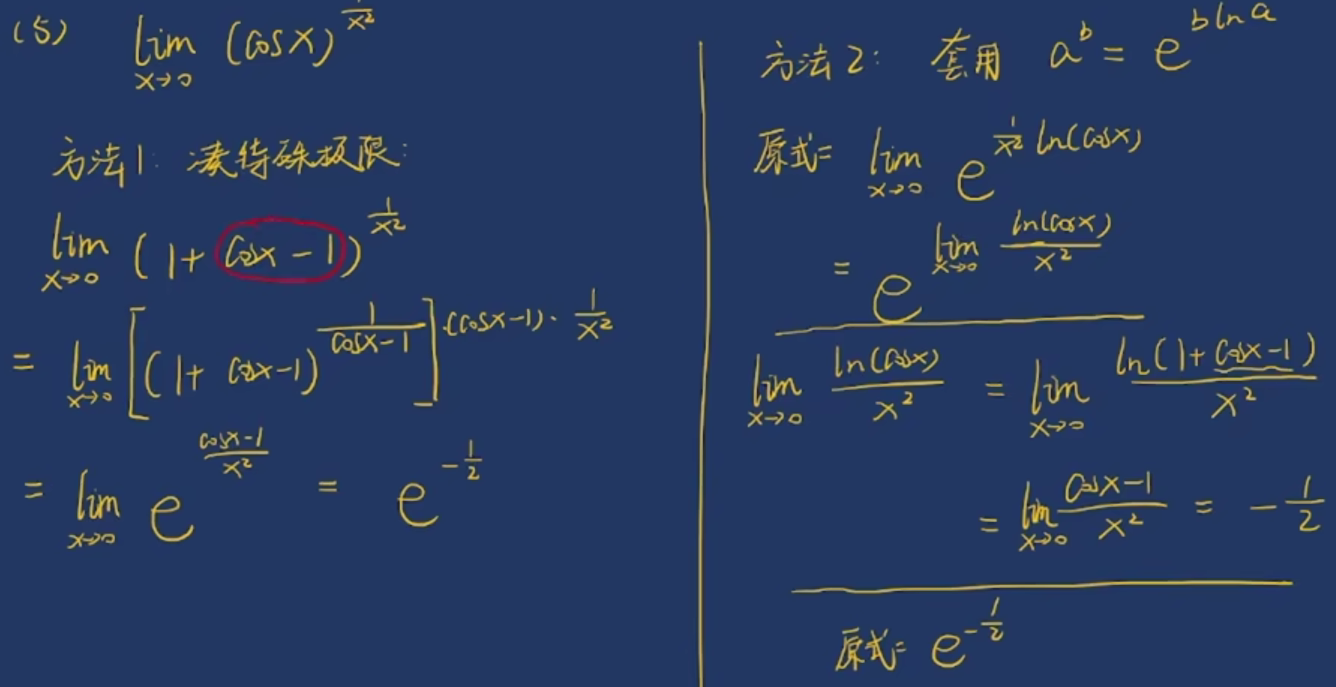 (5) lim_{x→0} (cosx)^{1/x²}
方法1: 凑特殊极限:
lim_{x→0} (1+cosx-1)^{1/x²}
= lim_{x→0} [(1+cosx-1)^{1/(cosx-1)}]^{(cosx-1)·1/x²}
= lim_{x→0} e^{(cosx-1)/x²} = e^{-1/2}
方法2: 套用 a^b = e^{b ln a}
原式= lim_{x→0} e^{1/x² ln(cosx)}
= e^{lim_{x→0} ln(cosx)/x²}
lim_{x→0} ln(cosx)/x² = lim_{x→0} ln(1+cosx-1)/x²
= lim_{x→0} (cosx-1)/x² = -1/2
原式= e^{-1/2}